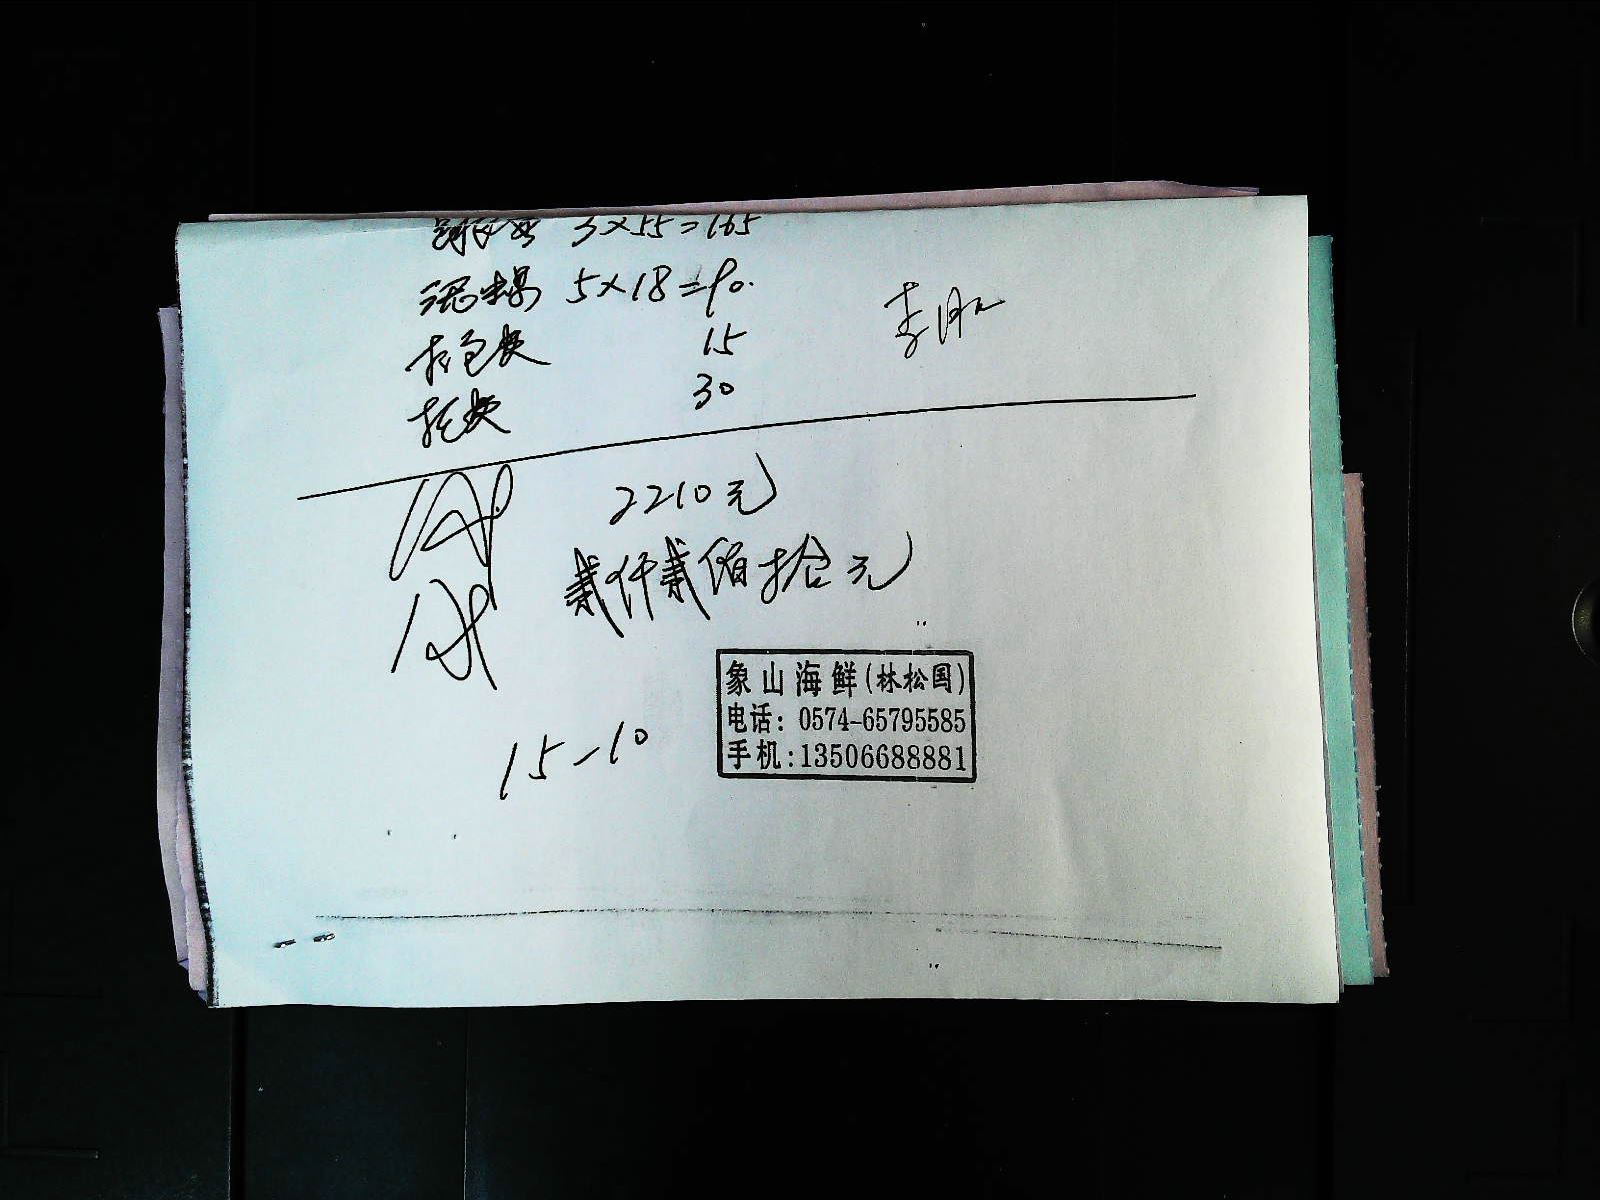 3×55=165
泥螺 5×18=90.
打包费 15
托费 30
2210元
贰仟贰佰拾元
象山海鲜(林松国)
电话: 0574-65795585
手机:13506688881
15-10